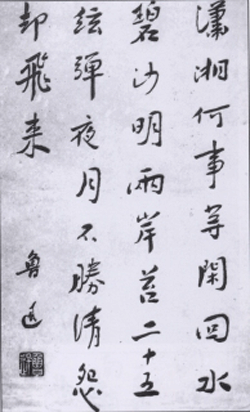 瀟湘何事等閑回水
碧沙明兩岸苔二十五
絃彈夜月不勝清怨
却飛来
魯迅